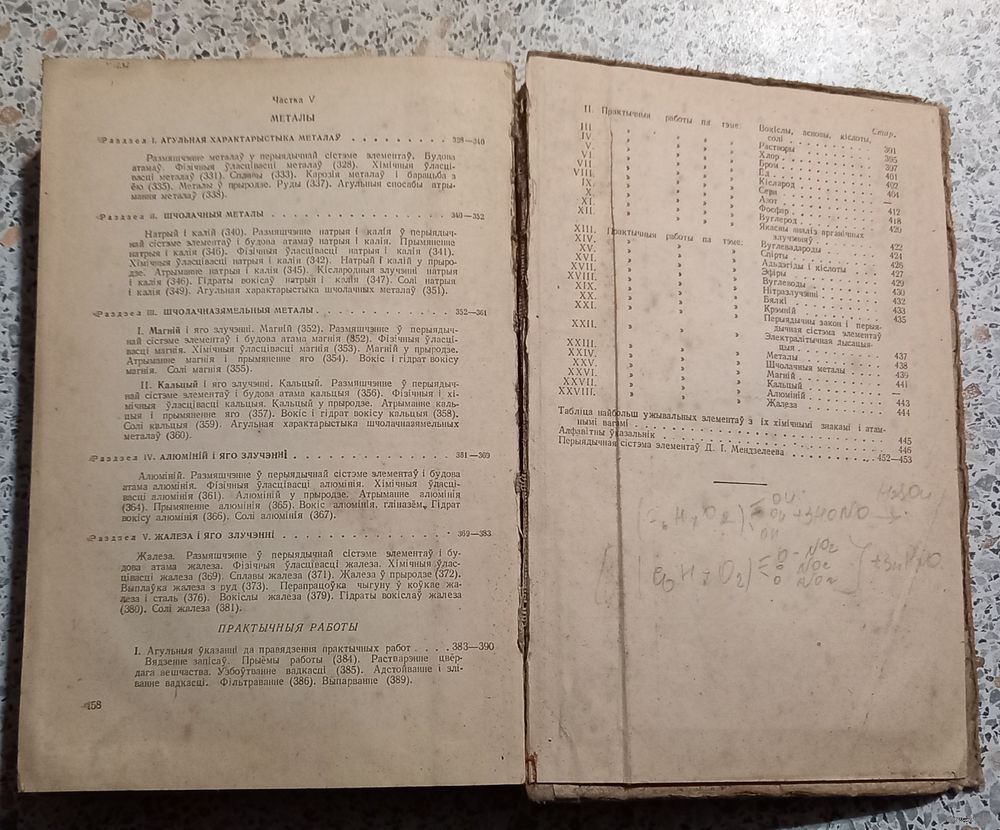 Частка V
МЕТАЛЫ
Раздзел I. АГУЛЬНАЯ ХАРАКТАРЫСТЫКА МЕТАЛАЎ . . . . . . . . 328—340
Размяшчэнне металаў у перыядычнай сістэме элементаў. Будова
атамаў. Фізічныя ўласцівасці металаў (328). Хімічныя ўласці-
васці металаў (331). Сплавы (333). Карозія металаў і барацьба з
ёю (335). Металы ў прыродзе. Руды (337). Агульныя спосабы атры-
мання металаў (338).
Раздзел II. ШЧОЛАЧНЫЯ МЕТАЛЫ . . . . . . . . 340—352
Натрый і калій (340). Размяшчэнне натрыя і калія ў перыядыч-
най сістэме элементаў і будова атамаў натрыя і калія. Прымяненне
натрыя і калія (346). Фізічныя ўласцівасці натрыя і калія (341).
Хімічныя ўласцівасці натрыя і калія (342). Натрый і калій у прыро-
дзе. Атрыманне натрыя і калія (345). Кіслародныя злучэнні натрыя
і калія (346). Гідраты вокісаў натрыя і калія (347). Солі натрыя
і калія (349). Агульная характарыстыка шчолачных металаў (351).
Раздзел III. ШЧОЛАЧНАЗЯМЕЛЬНЫЯ МЕТАЛЫ . . . . . . . . 352—361
I. Магній і яго злучэнні. Магній (352). Размяшчэнне ў перыядыч-
най сістэме элементаў і будова атама магнія (352). Фізічныя ўласці-
васці магнія. Хімічныя ўласцівасці магнія (353). Магній у прыродзе.
Атрыманне магнія і прымяненне яго (354). Вокіс і гідрат вокісу
магнія. Солі магнія (355).
II. Кальцый і яго злучэнні. Кальцый. Размяшчэнне ў перыядыч-
най сістэме элементаў і будова атама кальцыя (356). Фізічныя і хі-
мічныя ўласцівасці кальцыя. Кальцый у прыродзе. Атрыманне каль-
цыя і прымяненне яго (357). Вокіс і гідрат вокісу кальцыя (358).
Солі кальцыя (359). Агульная характарыстыка шчолачназямельных
металаў (360).
Раздзел IV. АЛЮМІНІЙ І ЯГО ЗЛУЧЭННІ . . . . . . . . 361—369
Алюміній. Размяшчэнне ў перыядычнай сістэме элементаў і будова
атама алюмінія. Фізічныя ўласцівасці алюмінія. Хімічныя ўласці-
васці алюмінія (361). Алюміній у прыродзе. Атрыманне алюмінія
(364). Прымяненне алюмінія (365). Вокіс алюмінія, гліназём. Гідрат
вокісу алюмінія (366). Солі алюмінія (367).
Раздзел V. ЖАЛЕЗА І ЯГО ЗЛУЧЭННІ . . . . . . . . 369—383
Жалеза. Размяшчэнне ў перыядычнай сістэме элементаў і бу-
дова атама жалеза. Фізічныя ўласцівасці жалеза. Хімічныя ўлас-
цівасці жалеза (369). Сплавы жалеза (371). Жалеза ў прыродзе (372).
Выплаўка жалеза з руд (373). Перапрацоўка чыгуну ў коўкае жа-
леза і сталь (376). Вокіслы жалеза (379). Гідраты вокіслаў жалеза
(380). Солі жалеза (381).
ПРАКТЫЧНЫЯ РАБОТЫ
I. Агульныя ўказанні да правядзення практычных работ . . . . 383—390
Вядзенне запісаў. Прыёмы работы (384). Растварэнне цвёр-
дага вешчаства. Узбоўтванне вадкасці (385). Адстойванне і злі-
ванне вадкасці. Фільтраванне (386). Выпарванне (389).
458
Стар.
II. Практычныя работы па тэме: Вокіслы, асновы, кіслоты,
солі . . . . 391
III » » » Растворы . . . . 395
IV » » » Хлор . . . . 397
V. » » » Бром . . . . 401
VI. » » » Ёд . . . . 402
VII. » » » Кісларод . . . . 404
VIII. » » » Сера . . . . —
IX. » » » Азот . . . . 412
X. » » » Фосфар . . . . 418
XI. » » » Вуглерод . . . . 420
XII. » » » Якасны аналіз арганічных
злучэнняў . . . . 422
XIII. Практычныя работы па тэме: Вуглевадароды . . . . 424
XIV. » » » Спірты . . . . 426
XV. » » » Альдэгіды і кіслоты . . . . 427
XVI. » » » Эфіры . . . . 429
XVII. » » » Вуглеводы . . . . 430
XVIII. » » » Нітразлучэнні . . . . 432
XIX. » » » Бялкі . . . . 433
XX. » » » Крэмній . . . . 435
XXI. » » » Перыядычны закон і перыя-
дычная сістэма элементаў
XXII. » » » Электралітычная дысацыя-
цыя . . . . 437
XXIII. » » » Металы . . . . 438
XXIV. » » » Шчолачныя металы . . . . 439
XXV. » » » Магній . . . . 441
XXVI. » » » Кальцый . . . . —
XXVII. » » » Алюміній . . . . 443
XXVIII. » » » Жалеза . . . . 444
Табліца найбольш ужывальных элементаў з іх хімічнымі знакамі і атам-
нымі вагамі . . . . 445
Алфавітны ўказальнік . . . . 446
Перыядычная сістэма элементаў Д. І. Мендзелеева . . . . 452—453